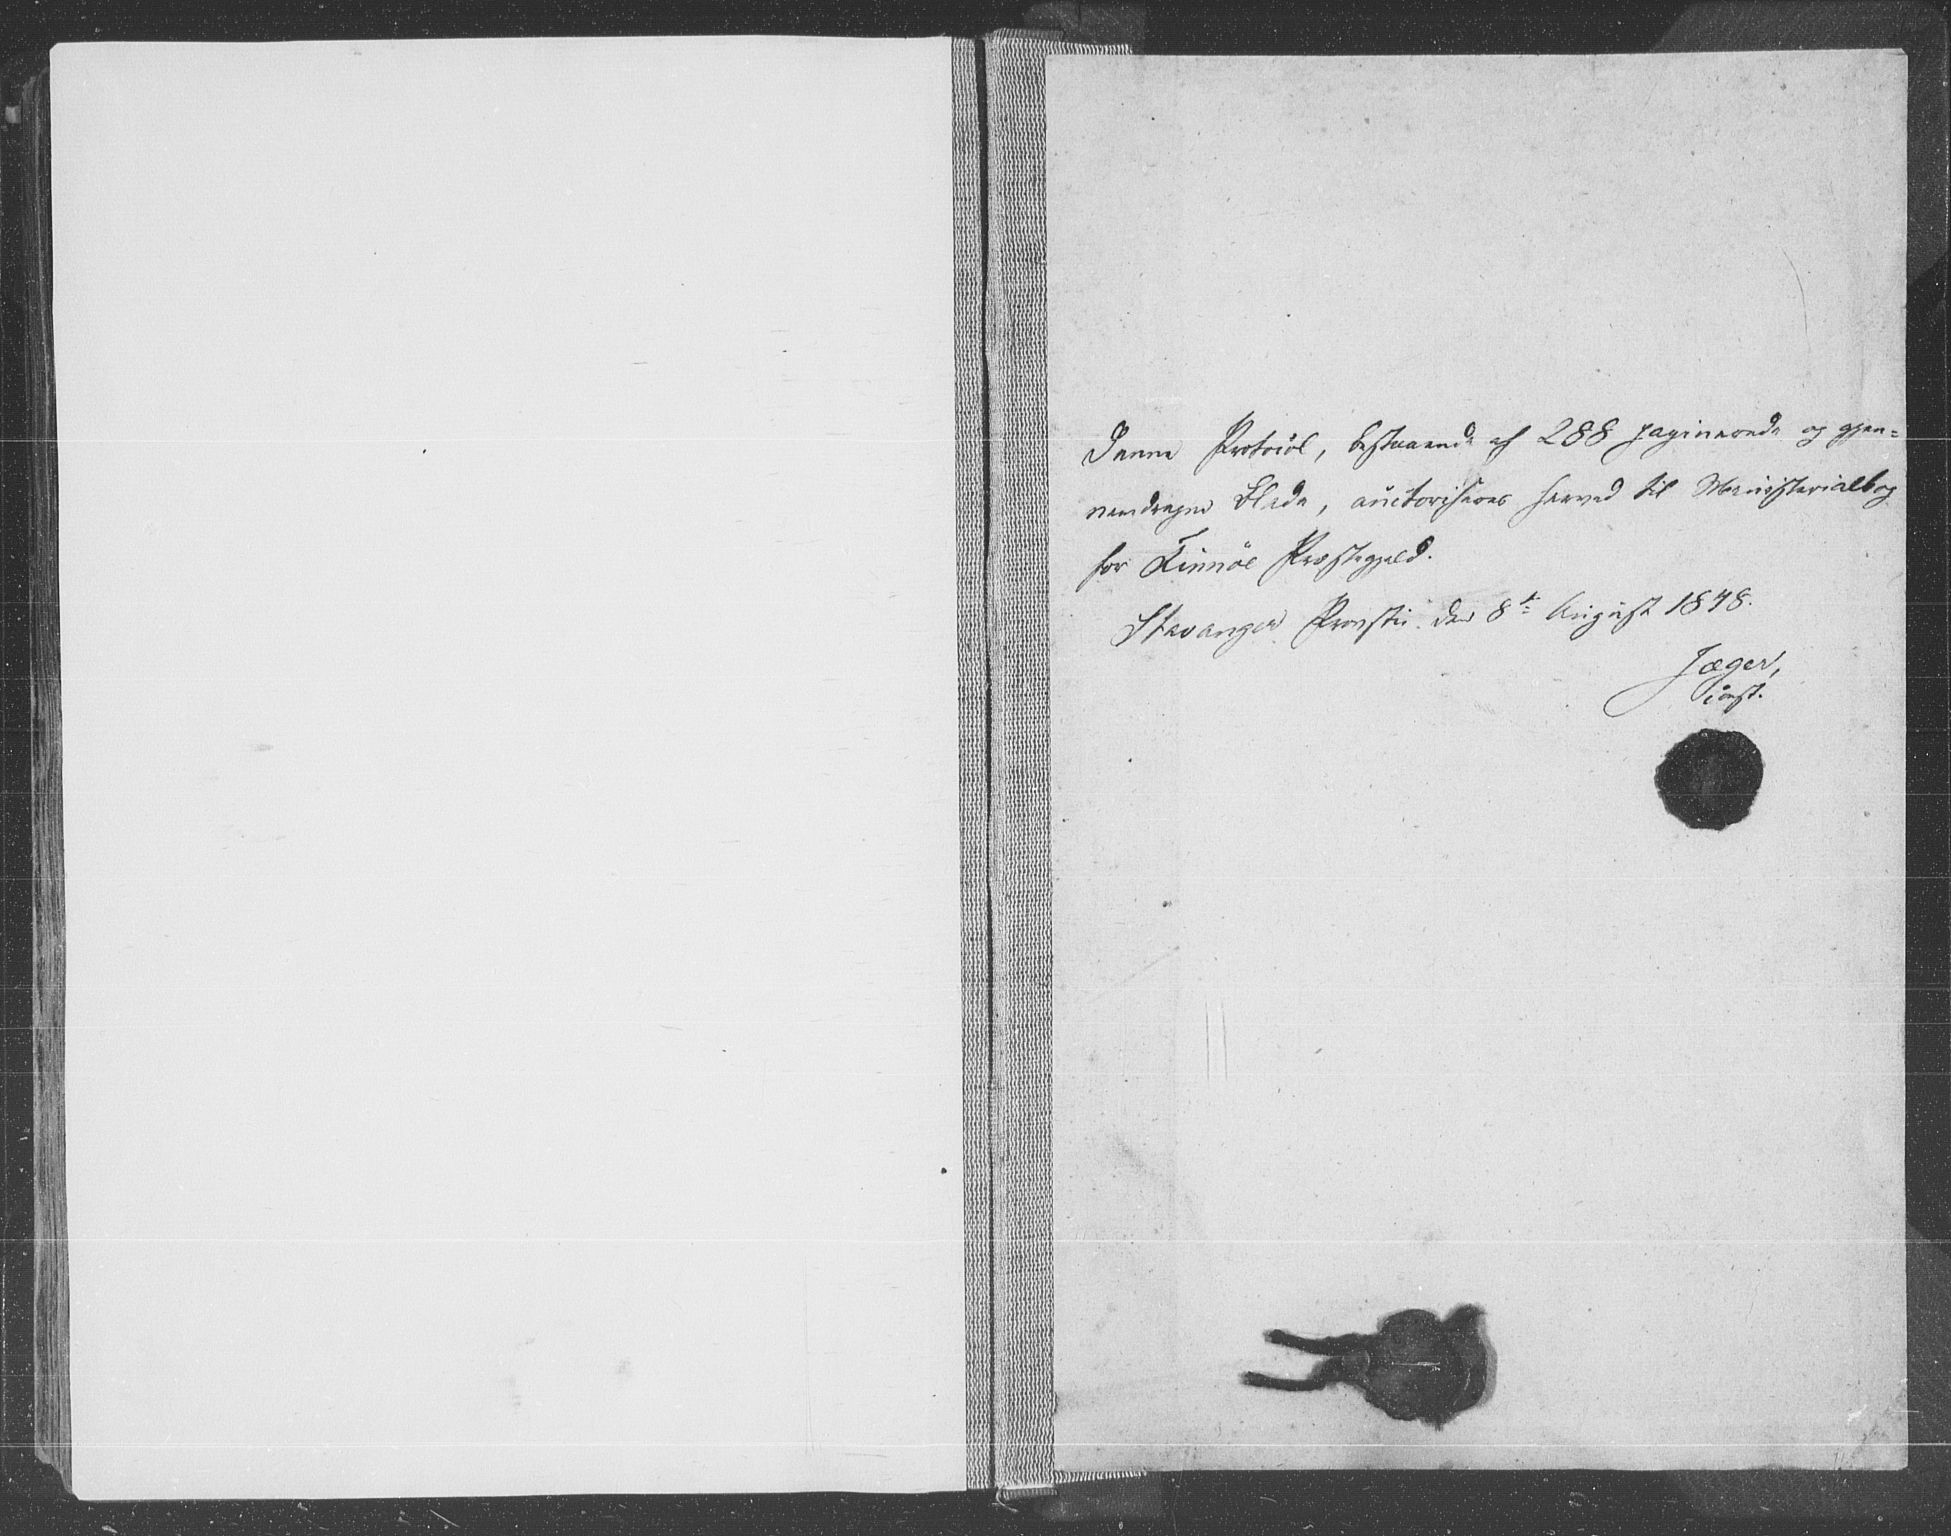 Denne Protocol, bestaaende af 288 paginerede og gjen=
nemdragne Blade, auctoriseres herved til Ministerialbog
for Finnöe Præstegjeld.
Stavanger Provsti den 8t August 1848.
Jæger,
const.